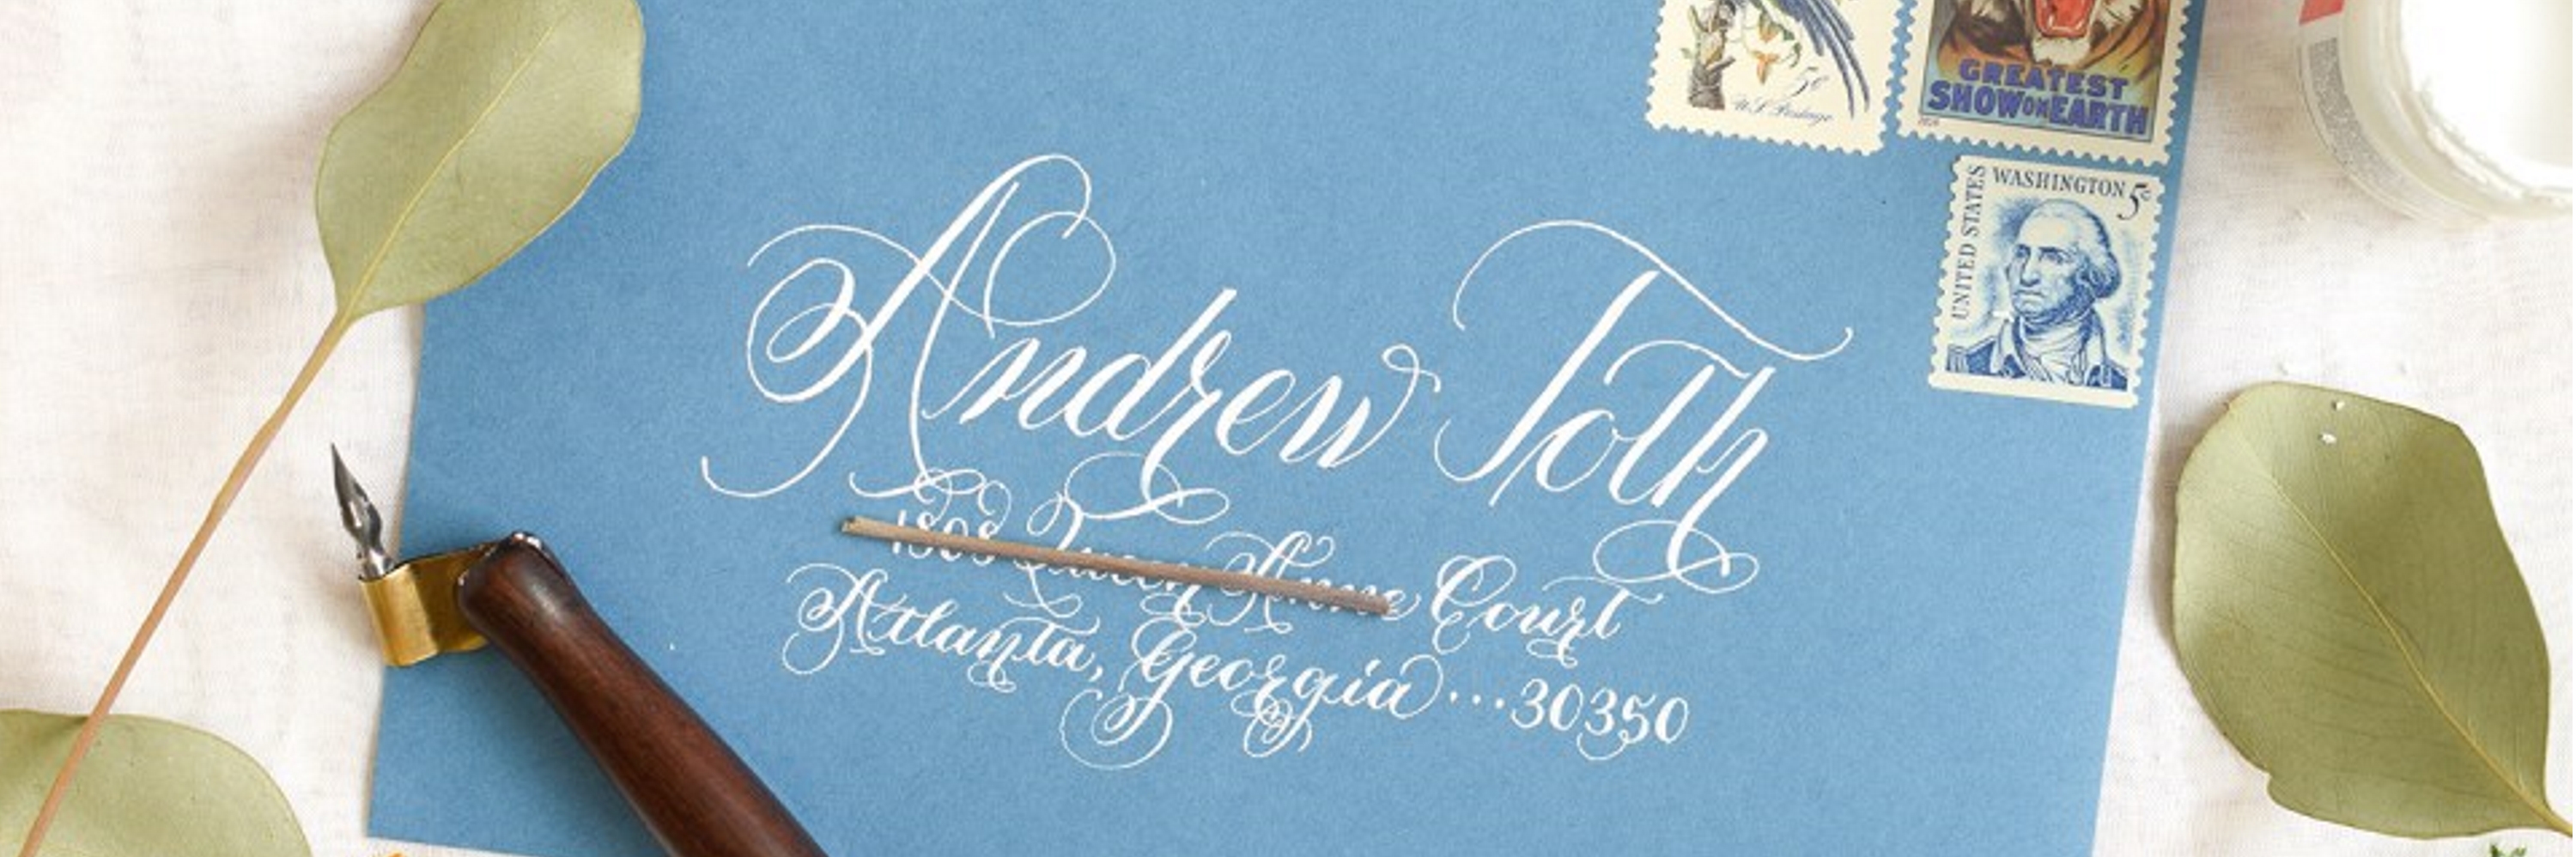 5¢
U.S. Postage
GREATEST
SHOW ON EARTH
UNITED STATES
WASHINGTON 5¢
Andrew Toth
1808 Queen Anne Court
Atlanta, Georgia...30350